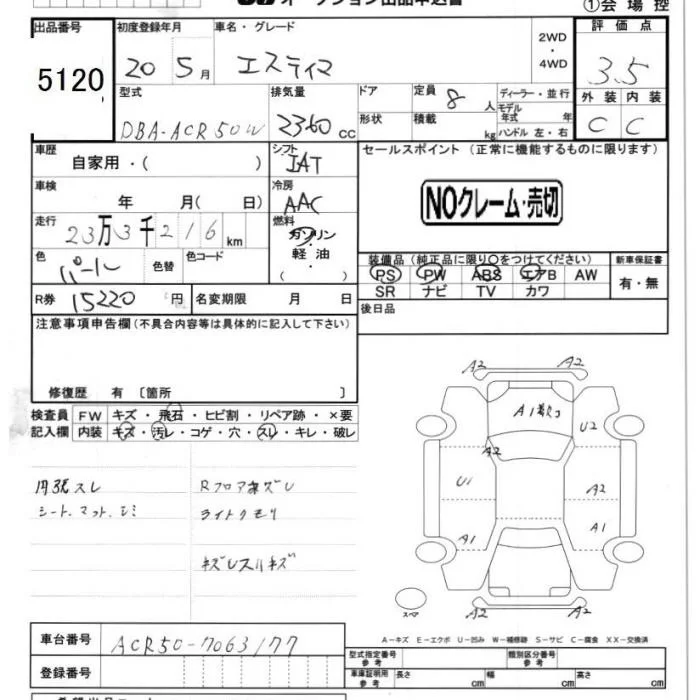 オークション出品申込書
①会場控
出品番号
5120
初度登録年月
20 5月
車名・グレード
エスティマ
2WD
・
4WD
評価点
3.5
外装 内装
C C
型式
DBA-ACR50W
排気量
2360 cc
ドア
形状
定員 8 人
積載 kg
ディーラー・並行
モデル年式 年
ハンドル 左・右
車歴
自家用・( )
シフト
IAT
セールスポイント (正常に機能するものに限ります)
NOクレーム・売切
車検
年 月( 日)
冷房
AAC
走行
23万3千216km
燃料
ガソリン
・
軽油
( )
色
パール
色替
色コード
装備品 (純正品に限り○をつけてください)
PS PW ABS エアB AW
SR ナビ TV カワ
新車保証書
有・無
R券 15220 円
名変期限 月 日
後日品
注意事項申告欄(不具合内容等は具体的に記入して下さい)
修復歴 有 〔箇所 〕
検査員記入欄
FW キズ・飛石・ヒビ割・リペア跡・×要
内装 キズ・汚レ・コゲ・穴・スレ・キレ・破レ
内張スレ
シート、マット、シミ
Rフロア
ライトクモリ
キズ
A2
A2
A1
U2
A2
U1
A2
A1
A1
A2
A2
スペア
A-キズ E-エクボ U-凹み W-補修跡 S-サビ C-腐食 XX-交換済
車台番号
ACR50-7063177
登録番号
型式指定番号
参考
類別区分番号
参考
車庫証明用
参考
長さ cm
幅 cm
高さ cm